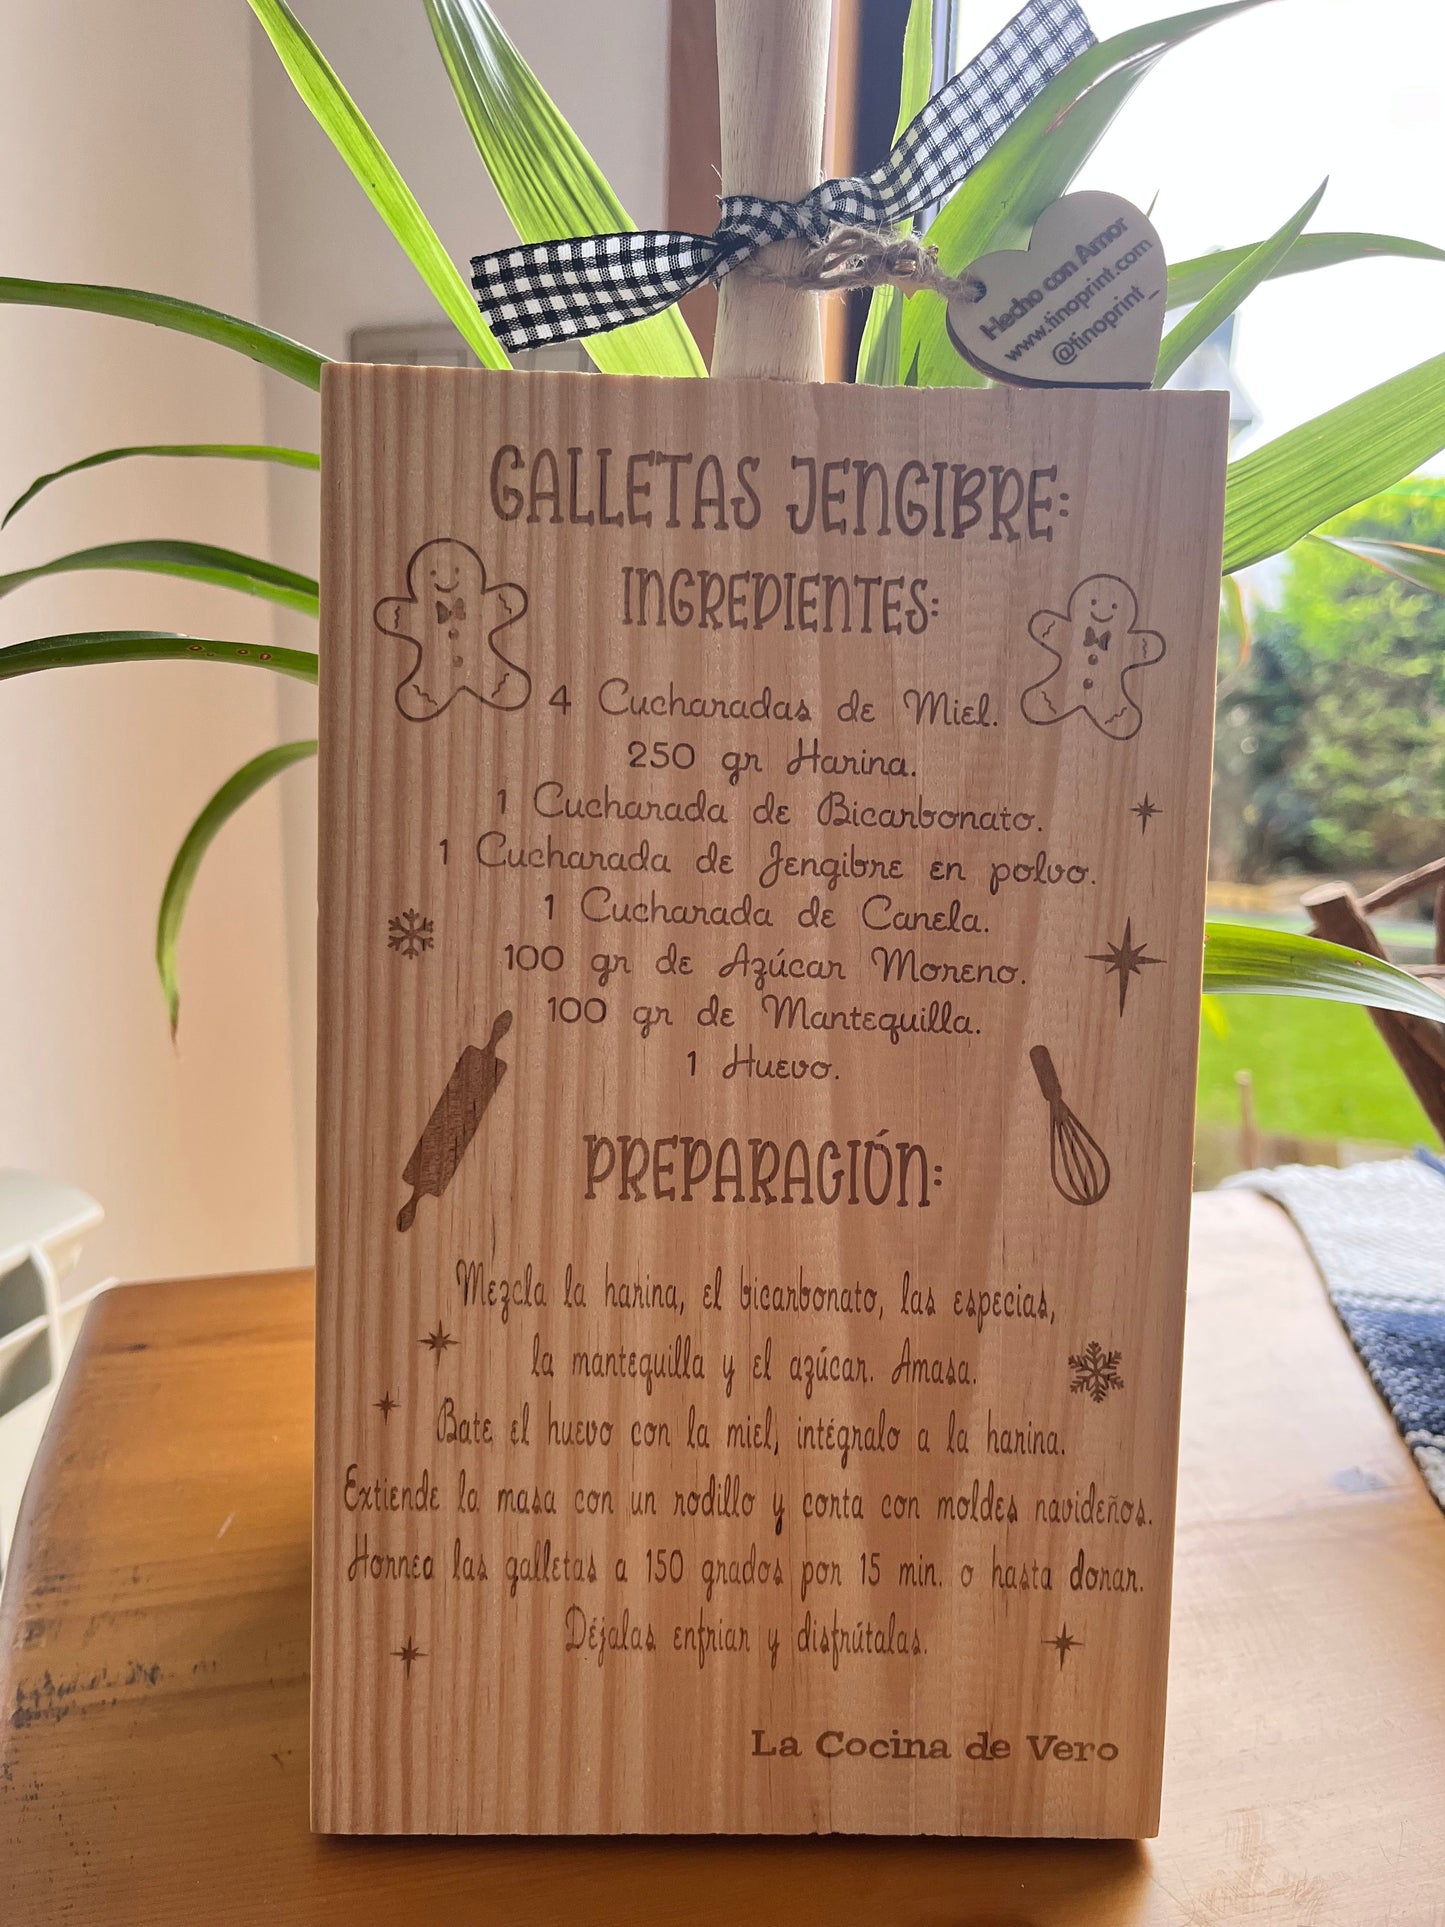 Hecho con Amor
www.tinoprint.com
@tinoprint_
GALLETAS JENGIBRE:
INGREDIENTES:
4 Cucharadas de Miel.
250 gr Harina.
1 Cucharada de Bicarbonato.
1 Cucharada de Jengibre en polvo.
1 Cucharada de Canela.
100 gr de Azúcar Moreno.
100 gr de Mantequilla.
1 Huevo.
PREPARACIÓN:
Mezcla la harina, el bicarbonato, las especias,
la mantequilla y el azúcar. Amasa.
Bate el huevo con la miel, intégralo a la harina.
Extiende la masa con un rodillo y corta con moldes navideños.
Hornea las galletas a 150 grados por 15 min. o hasta dorar.
Déjalas enfriar y disfrútalas.
La Cocina de Vero